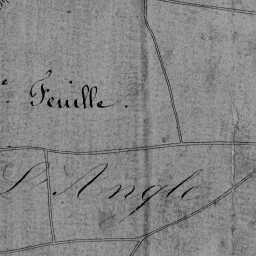 e. Feuille.
L'Angle